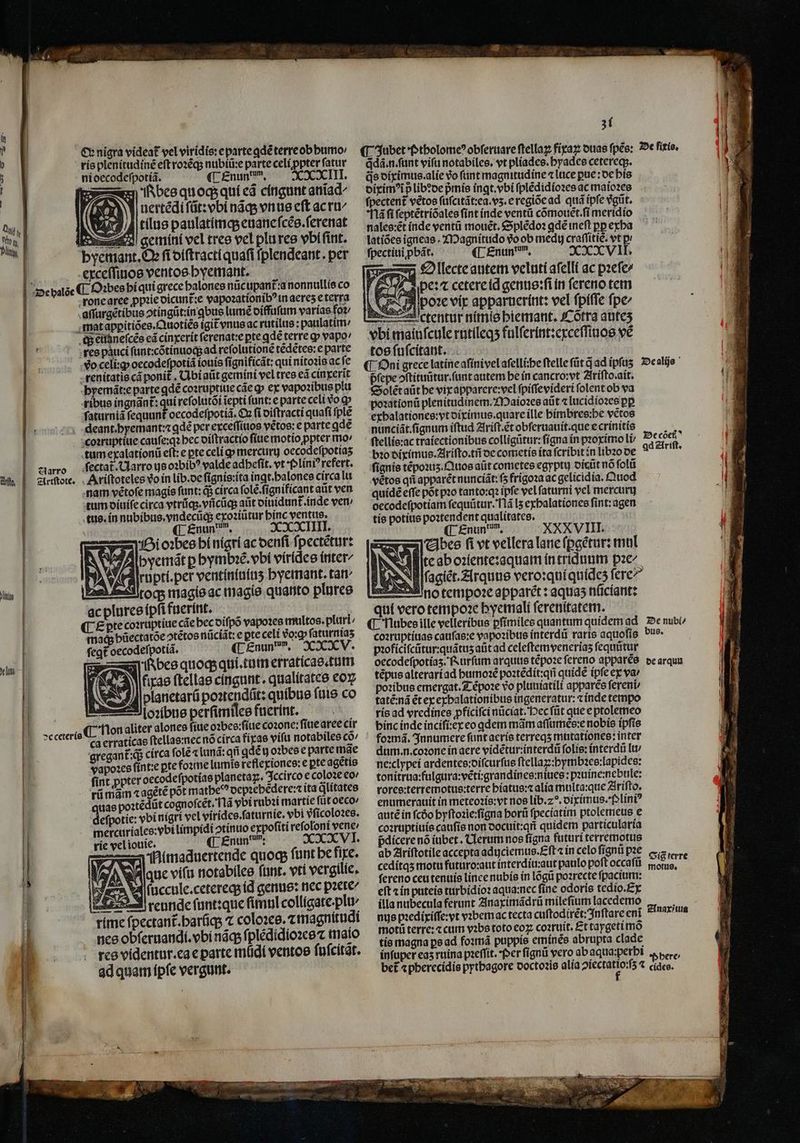 31
Qꝫ nigra videat᷑ vel viridis: e parte qdē terre ob humo/
ris plenitudinē eſt roꝛēqꝫ nubiū: e parte celi ꝓpter ſatur
ni oecodeſpotiā. ¶ Enunᵗᵘᵐ. XXXIII.
ORbes quoqꝫ qui eā cingunt aniad/
uertēdi ſūt: vbi nāqꝫ vnus eſt ac ru/
tilus paulatimqꝫ euaneſcēs. ſerenat
gemini vel tres vel plures vbi ſint.
hyemant. Qꝫ ſi diſtracti quaſi ſplendeant. per
exceſſiuos ventos hyemant.
De halōe
¶ Oꝛbes hi qui grece halones nūcupant᷑: a nonnullis co
rone aree ꝓpꝛie dicunt᷑: e vapoꝛationibꝰ in aere e terra
aſſurgētibus ↄtingūt: in qbus lumē diffuſum varias foꝛ/
mat appitiōes. Quotiēs igit᷑ vnus ac rutilus: paulatim/
qꝫ euāneſcēs eā cinxerit ſerenat: e pte qdē terre qꝫ vapo/
res pauci ſunt: cōtinuoqꝫ ad reſolutionē tēdētes: e parte
vo celi: qꝫ oecodeſpotiā iouis ſignificāt: qui nitoꝛis ac ſe
renitatis cā ponit᷑. Ubi aūt gemini vel tres eā cinxerit
hyemāt: e parte qdē coꝛruptiue cāe qꝫ ex vapoꝛibus plu
ribus ingnānt᷑: qui reſolutōi iepti ſunt: e parte celi vo qꝫ
ſaturniā ſequunt᷑ oecodeſpotiā. Qꝫ ſi diſtracti quaſi ſplē
deant. hyemant: ⁊ qdē per exceſſiuos vētos: e parte qdē
coꝛruptiue cauſe: qꝫ hec diſtractio ſiue motio ꝓpter mo/
tum exalationū eſt: e pte celi qꝫ mercurij oecodeſpotiaꝫ
Uarro
ſectat᷑. Uarro ijs oꝛbibꝰ valde adheſit. vt Pliniꝰ refert.
Ariſtote.
Ariſtoteles vo in lib. de ſignis: ita inqt. halones circa lu
nam vētoſe magis ſunt: qꝫ circa ſolē. ſignificant aūt ven
tum diuiſe circa vtrūqꝫ. vn̄cūqꝫ aūt diuidunt᷑. inde ven/
tus. in nubibus. vndecūqꝫ exoꝛiūtur hinc ventus.
¶ Enunᵗᵘᵐ. XXXIIII.
SI oꝛbes hi nigri ac denſi ſpectētur:
hyemāt ⁊ hymbꝛē. vbi virides inter/
rupti. per ventinimiuꝫ hyemant. tan/
toqꝫ magis ac magis quanto plures
ac plures ipſi fuerint.
¶ E pte coꝛruptiue cāe hec diſpō vapoꝛes multos. pluri/
maqꝫ hūectatōe ↄtētos nūciāt: e pte celi vo: qꝫ ſaturniaꝫ
ſeqt᷑ oecodeſpotiā. ¶ Enunᵗᵘᵐ. XXXV.
ORbes quoqꝫ qui. tum erraticas. tum
fixas ſtellas cingunt. qualitates eoꝝ
planetarū poꝛtendūt: quibus ſuis co
loꝛibus perſimiles fuerint.
De ceteris
¶ Non aliter alones ſiue oꝛbes: ſiue coꝛone: ſiue aree cir
ca erraticas ſtellas: nec nō circa fixas viſu notabiles cō/
gregant᷑: qꝫ circa ſolē ⁊ lunā: qn̄ qdē ij oꝛbes e parte māe
vapoꝛes ſint: e pte foꝛme lumīs reflexiones: e pte agētis
ſint ꝓpter oecodeſpotias planetaꝝ. Iccirco e coloꝛe eo/
rū mām ⁊ agētē pōt matheꝰ depꝛehēdere: ⁊ ita q̄litates
quas poꝛtēdūt cognoſcēt. Nā vbi rubꝛi martie ſūt oeco/
deſpotie: vbi nigri vel virides. ſaturnie. vbi v̄ſicoloꝛes.
mercuriales: vbi limpidi ↄtinuo expoſiti reſoloni vene/
rie vel iouie. ¶ Enunᵗᵘᵐ. XXXVI.
ANimaduertende quoqꝫ ſunt he fixe.
que viſu notabiles ſunt. vti vergilie.
ſuccule. ceterecqꝫ id genus: nec pꝛete/
reunde ſunt: que ſimul colligate. plu/
rime ſpectant᷑. harūqꝫ ⁊ coloꝛes. ⁊ magnitudi
nes obſeruandi. vbi nāqꝫ ſplēdidioꝛes ⁊ maio
res videntur. ea e parte mūdi ventos ſuſcitāt.
ad quam ipſe vergunt.
De fixis.
¶ Iubet Ptholomeꝰ obſeruare ſtellaꝝ fixaꝝ duas ſpēs:
q̄dā. n. ſunt viſu notabiles. vt pliades. hyades ceterecqꝫ.
q̄s diximus. alie vo ſunt magnitudine ⁊ luce pue: de his
diximꝰ ī p̄ libꝰ de pm̄is inqt. vbi ſplēdidioꝛes ac maioꝛes
ſpectent᷑ vētos ſuſcitāt: ea. vꝫ. e regiōe ad quā ipſe v̄gūt.
Nā ſi ſeptētriōales ſint inde ventū cōmouēt. ſi meridio
nales: ēt inde ventū mouēt. Splēdoꝛ qdē ineſt ꝓp exha
latiōes igneas. Magnitudo vo ob medij craſſitiē. vt p/
ſpectiui ꝓbāt. ¶ Enunᵗᵘᵐ. XXXVII.
COllecte autem veluti aſelli ac pꝛeſe/
pe: ⁊ cetere id genus: ſi in ſereno tem
poꝛe vix apparuerint: vel ſpiſſe ſpe/
ctentur nimis hiemant. Cōtra auteꝫ
vbi maiuſcule rutileqꝫ fulſerint: exceſſiuos vē
tos ſuſcitant.
De alijs
¶ Oni grece latine aſini vel aſelli: he ſtelle ſūt q̄ ad ipſuꝫ
p̄ſepe ↄſtituūtur. ſunt autem he in cancro: vt Ariſto. ait.
Solēt aūt he vix apparere: vel ſpiſſe videri ſolent ob va
poꝛationū plenitudinem. Maioꝛes aūt ⁊ lucidioꝛes ꝓp
exhalationes: vt diximus. quare ille himbres: he vētos
nunciāt. ſignum iſtud Ariſt. ēt obſeruauit. que e crinitis
De cōet᷑ qd Ariſt.
ſtellis: ac traiectionibus colligūtur: ſigna in pꝛoximo li/
bꝛo diximus. Ariſto. tn̄ de cometis ita ſcribit in libꝛo de
ſignis tēpoꝛuꝫ. Quos aūt cometes egyptij dicūt nō ſolū
vētos qn̄ apparēt nunciāt: ſꝫ frigoꝛa ac gelicidia. Quod
quidē eſſe pōt pꝛo tanto: qꝫ ipſe vel ſaturni vel mercurij
oecodeſpotiam ſequūtur. Nā lꝫ exhalationes ſint: agen
tis potius poꝛtendent qualitates.
¶ Enunᵗᵘᵐ. XXXVIII.
NUbes ſi vt vellera lane ſpgētur: mul
te ab oꝛiente: aquam in triduum pꝛe/
ſagiēt. Arquus vero: qui quideꝫ ſere/
no tempoꝛe apparēt: aquaꝫ nūciant:
qui vero tempoꝛe hyemali ſerenitatem.
De nubi/bus.
¶ Nubes ille velleribus pſimiles quantum quidem ad
coꝛruptiuas cauſas: e vapoꝛibus interdū raris aquoſis
pꝛoficiſcūtur: quātuꝫ aūt ad celeſtem veneriaꝫ ſequūtur
de arquu
oecodeſpotiaꝫ. Rurſum arquus tēpoꝛe ſereno apparēs
tēpus alterari ad humoꝛē poꝛtēdit: qn̄ quidē ipſe ex va/
poꝛibus emergat. Tēpoꝛe vo pluuiatili apparēs ſereni/
tatē: nā ēt ex exhalationibus ingeneratur: ⁊ inde tempo
ris ad vredines ꝓficiſci nūciat. Hec ſūt que e ptolemeo
hinc inde inciſi: ex eo qdem mām aſſumēs: e nobis ipſis
foꝛmā. Innumere ſunt aeris terreqꝫ mutationes: inter
dum. n. coꝛone in aere vidētur: interdū ſolis: interdū lu/
ne: clypei ardentes: diſcurſus ſtellaꝝ: hymbꝛes: lapides:
tonitrua: fulgura: vēti: grandines: niues: pꝛuine: nebule:
rores: terremotus: terre hiatus: ⁊ alia multa: que Ariſto.
enumerauit in meteoꝛis: vt nos lib. 2°. diximus. Pliniꝰ
autē in ſcdo hyſtoꝛie: ſigna hoꝛū ſpeciatim ptolemeus e
coꝛruptiuis cauſis non docuit: qn̄ quidem particularia
p̄dicere nō iubet. Uerum nos ſigna futuri terremotus
Sig᷑ terre motus.
ab Ariſtotile accepta adijciemus. Eſt ⁊ in celo ſignū pꝛe
ceditqꝫ motu futuro: aut interdiu: aut paulo poſt occaſū
ſereno ceu tenuis linee nubis in lōgū poꝛrecte ſpacium:
eſt ⁊ in puteis turbidioꝛ aqua: nec ſine odoris tedio. Ex
Anaxiius
illa nubecula ferunt Anaximādrū mileſium lacedemo
nijs pꝛedixiſſe: vt vꝛbem ac tecta cuſtodirēt: Inſtare eni
motū terre: ⁊ cum vꝛbs toto eoꝝ coꝛruit. Et taygeti mō
tis magna ps ad foꝛmā puppis eminēs abrupta clade
Phere/cides.
inſuper eaꝫ ruina pꝛeſſit. Per ſignū vero ab aqua: perhi
bet᷑ ⁊ pherecidis pythagore doctoꝛis alia ↄiectatio: ſꝫ ⁊
f